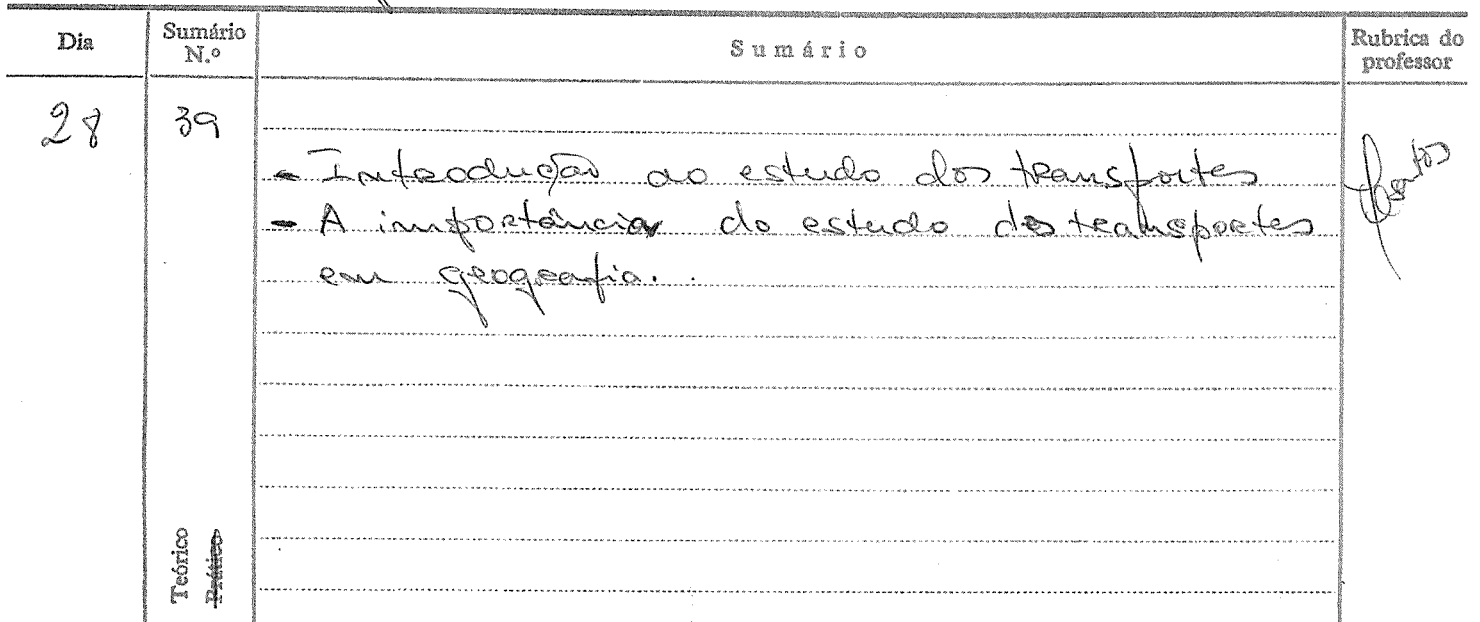 Dia
Sumário
N.º
Sumário
Rubrica do
professor
28
39
- Introdução ao estudo dos transportes
- A importância do estudo dos transportes
em geografia.
Teórico
Prático